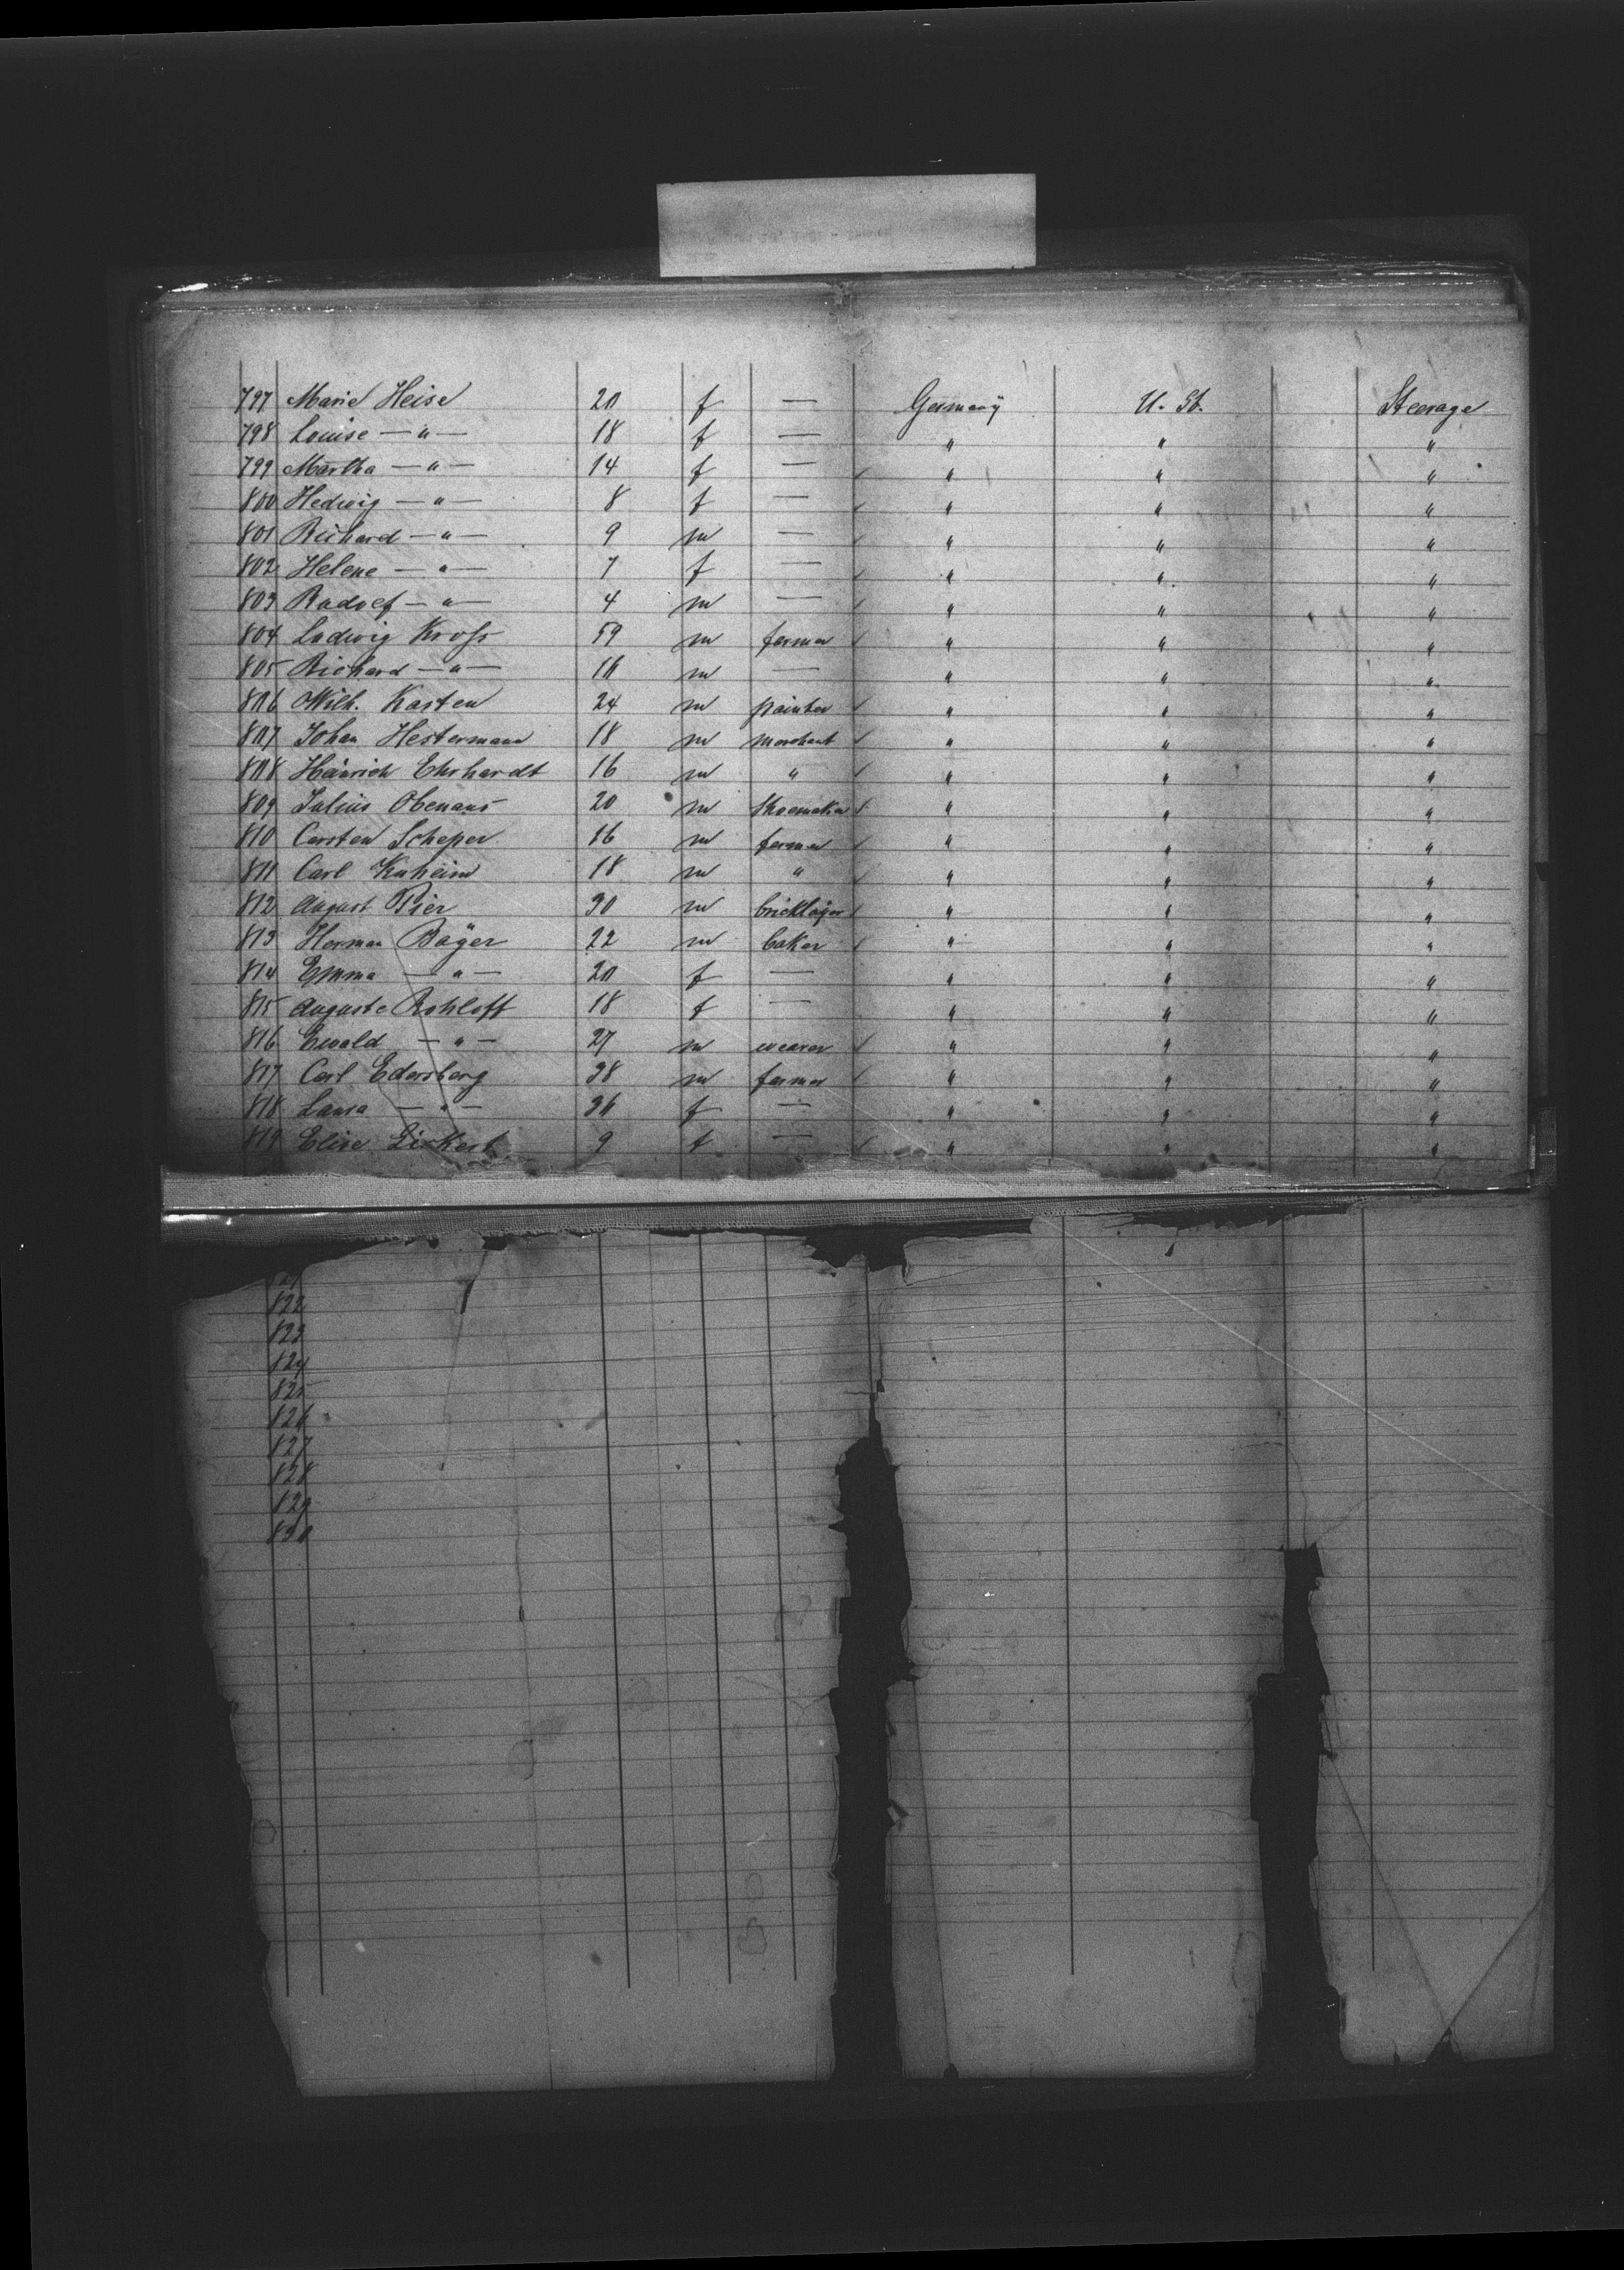 797 Marie Heise 20 f — Germany U. St. Steerage
798 Louise — " — 18 f — " " "
799 Martha — " — 14 f — " " "
800 Hedwig — " — 8 f — " " "
801 Richard — " — 9 m — " " "
802 Helene — " — 7 f — " " "
803 Rudolf — " — 4 m — " " "
804 Ludwig Kroß 59 m farmer " " "
805 Richard — " — m — " " "
806 Wilh. Karsten 24 m painter " " "
807 Johan Hestermann 18 m merchant " " "
808 Heinrich Ehrhardt 16 m " " " "
809 Julius Obenaus 20 m shoemaker " " "
810 Carsten Scheper 16 m farmer " " "
811 Carl Kuheim 18 m " " " "
812 August Pier 30 m bricklayer " " "
813 Herman Bayer 22 m baker " " "
814 Emma — " — 20 f — " " "
815 Auguste Rohloff 18 f — " " "
816 Ewald — " — 27 m weaver " " "
817 Carl Edersberg 38 m farmer " " "
818 Laura — " — 36 f — " " "
819 Elise 9 f — " " "
821
822
823
824
825
826
827
828
829
830